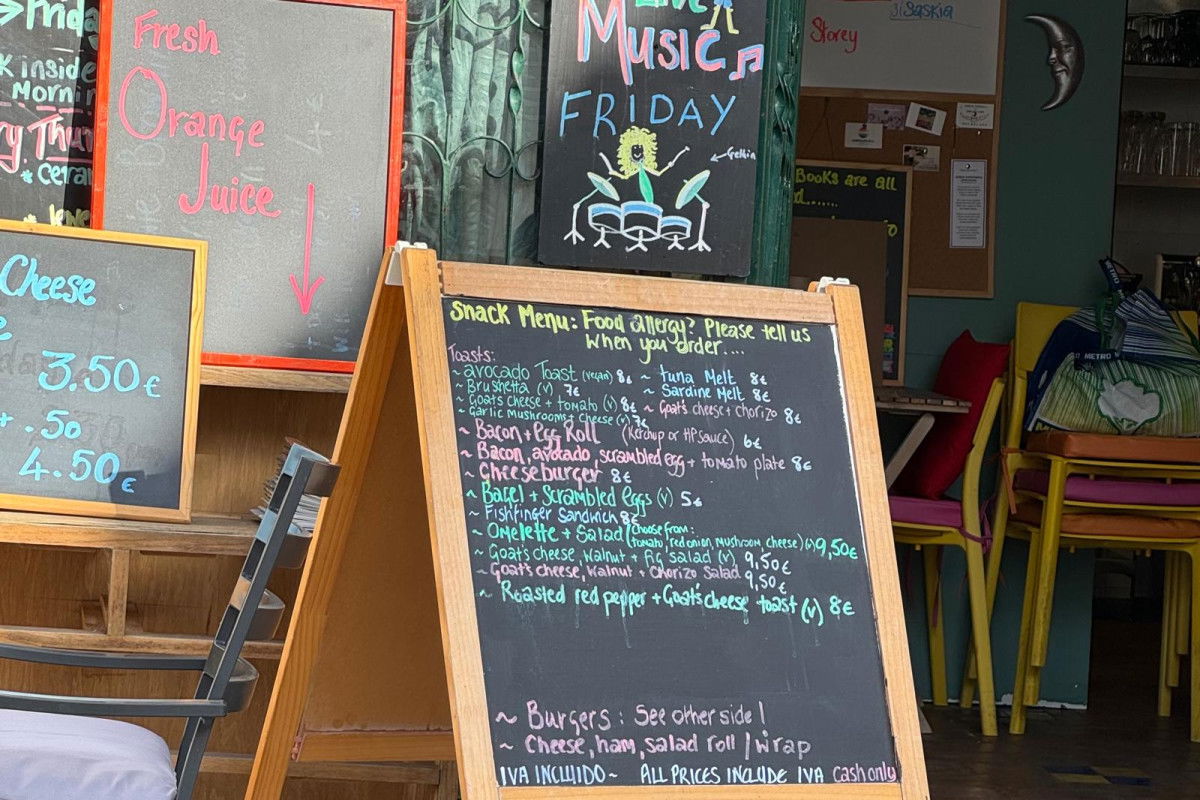 Frid
K inside
Morni
ry Thu
* cera
Cheese
3.50€
+ .50
4.50€
Fresh
Orange
Juice
Live
Music
FRIDAY
Storey
Saskia
Books are all
METRO
Snack Menu: Food allergy? Please tell us
when you order....
Toasts:
~ avocado Toast (vegan) 8€ ~ tuna Melt 8€
~ Brushetta (v) 7€ ~ Sardine Melt 8€
~ Goat's cheese + tomato (v) 8€ ~ Goat's cheese + chorizo 8€
~ Garlic Mushrooms + Cheese (v) 7€
~ Bacon + Egg Roll (Ketchup or HP sauce) 6€
~ Bacon, avocado, scrambled egg + tomato plate 8€
~ Cheeseburger 8€
~ Bagel + Scrambled eggs (v) 5€
~ Fishfinger Sandwich 8€
~ Omelette + Salad (choose from:
tomato, red onion, mushroom cheese) (v) 9,50€
~ Goat's cheese, walnut + fig salad (v) 9,50€
~ Goat's cheese, walnut + chorizo Salad 9,50€
~ Roasted red pepper + Goat's cheese toast (v) 8€
~ Burgers: See other side!
~ Cheese, ham, salad roll / wrap
IVA INCLUIDO ~ ALL PRICES INCLUDE IVA cash only